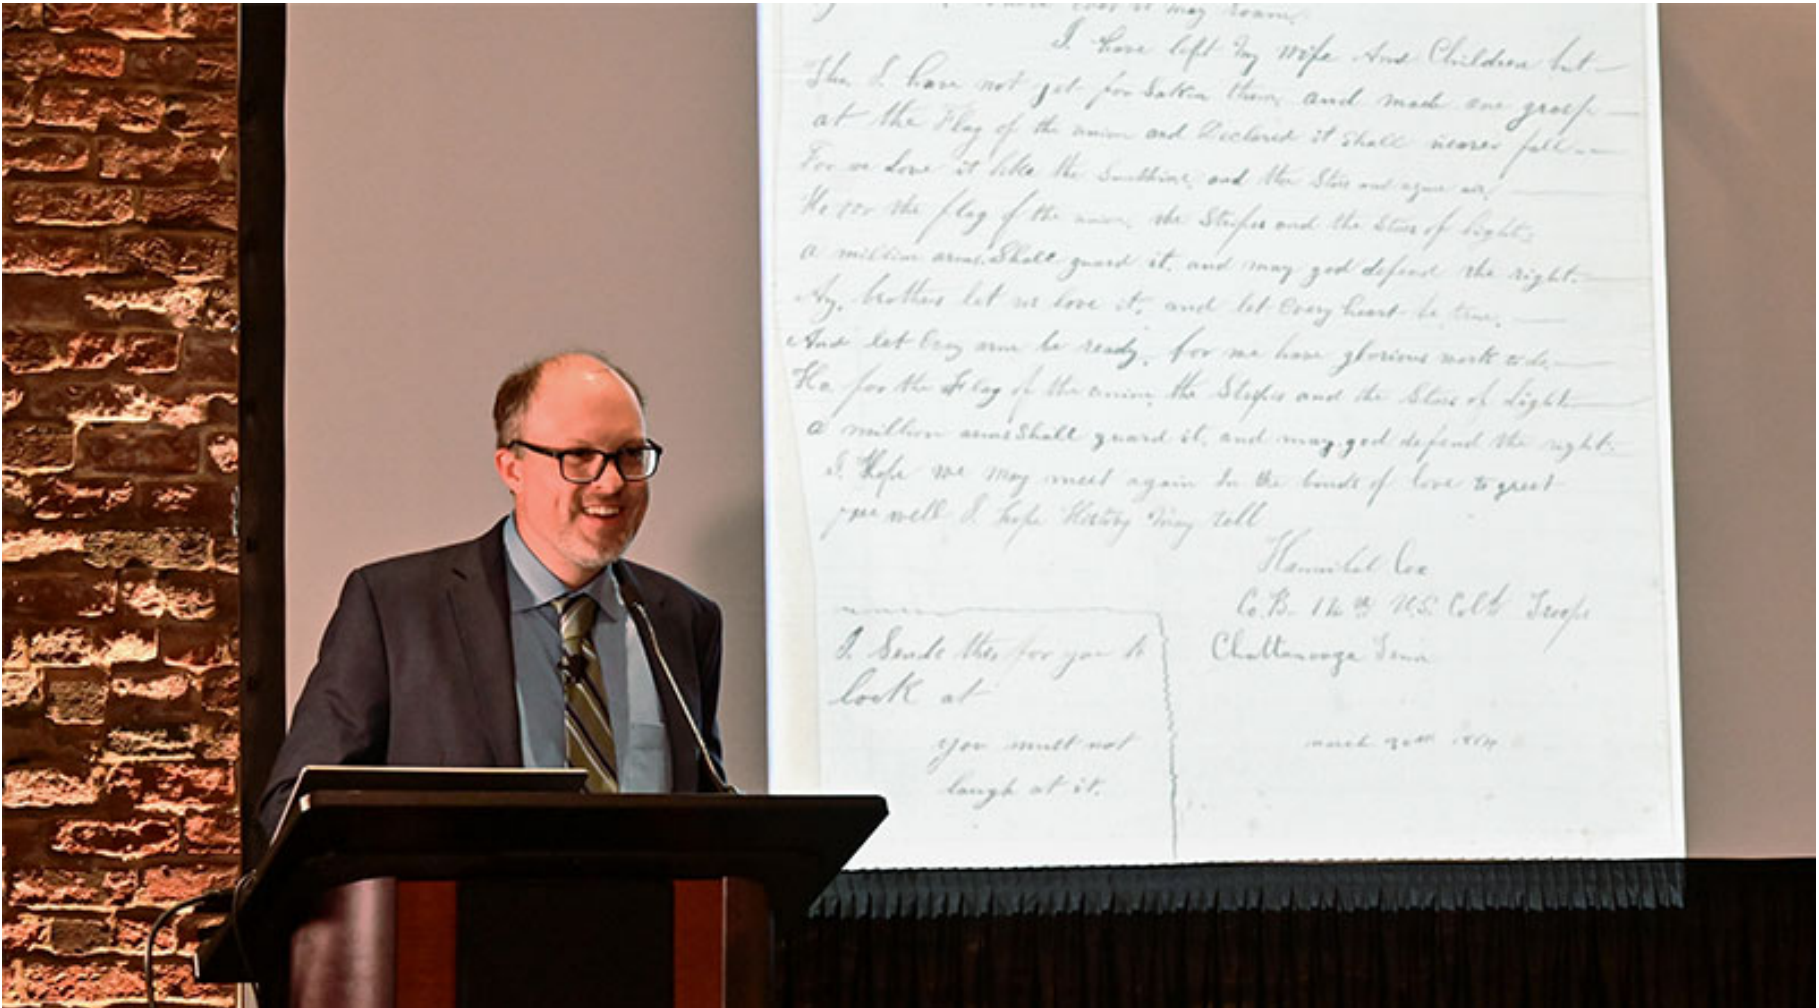 may roam,
I have left my wife And Children but
tho I have not yet forsaken them and made one grasp
at the Flag of the union and Declared it shall never fall
For we Love it like the Sunshine, and the Stars and azure air,
Ho for the flag of the union, the Stripes and the Stars of Light,
a million arms Shall guard it, and may god defend the right.
Ay, brothers let us love it, and let Every heart be true,
And let Evry arm be ready, for we have glorious work to do,
Ho, for the Flag of the union, the Stripes and the Stars of Light
a million arms Shall guard it, and may god defend the right.
I Hope we may meet again In the bonds of love to greet
well I hope History may tell
Hannibal Cox
Co. B. 14th U.S. Cold Troops
Chattanooga Tenn
march 30th 1864
I Sends this for you to
look at
you must not
laugh at it.